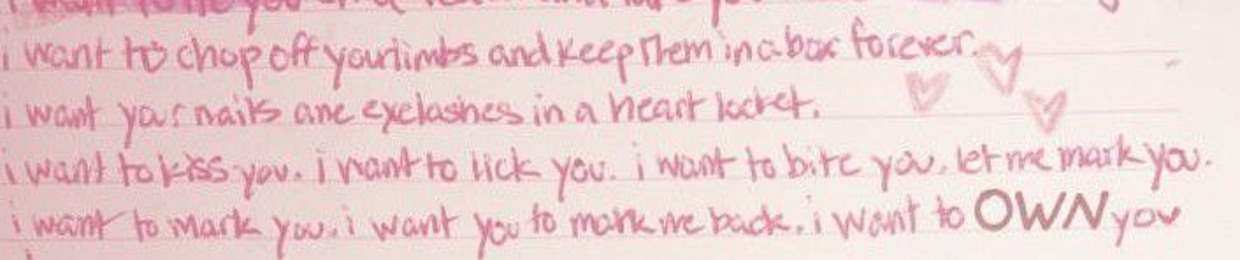 i want to chop off your limbs and keep them in a box forever.
i want your nails ane eyelashes in a heart locket.
i want to kiss you. i want to lick you. i want to bite you. let me mark you.
i want to mark you. i want you to mark me back. i want to OWN you